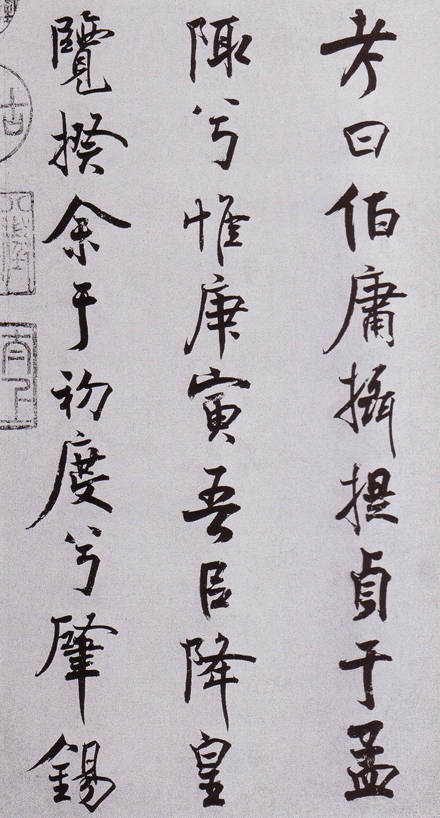 考曰伯庸攝提貞于孟
陬兮惟庚寅吾㠯降皇
覽揆余于初度兮肇錫